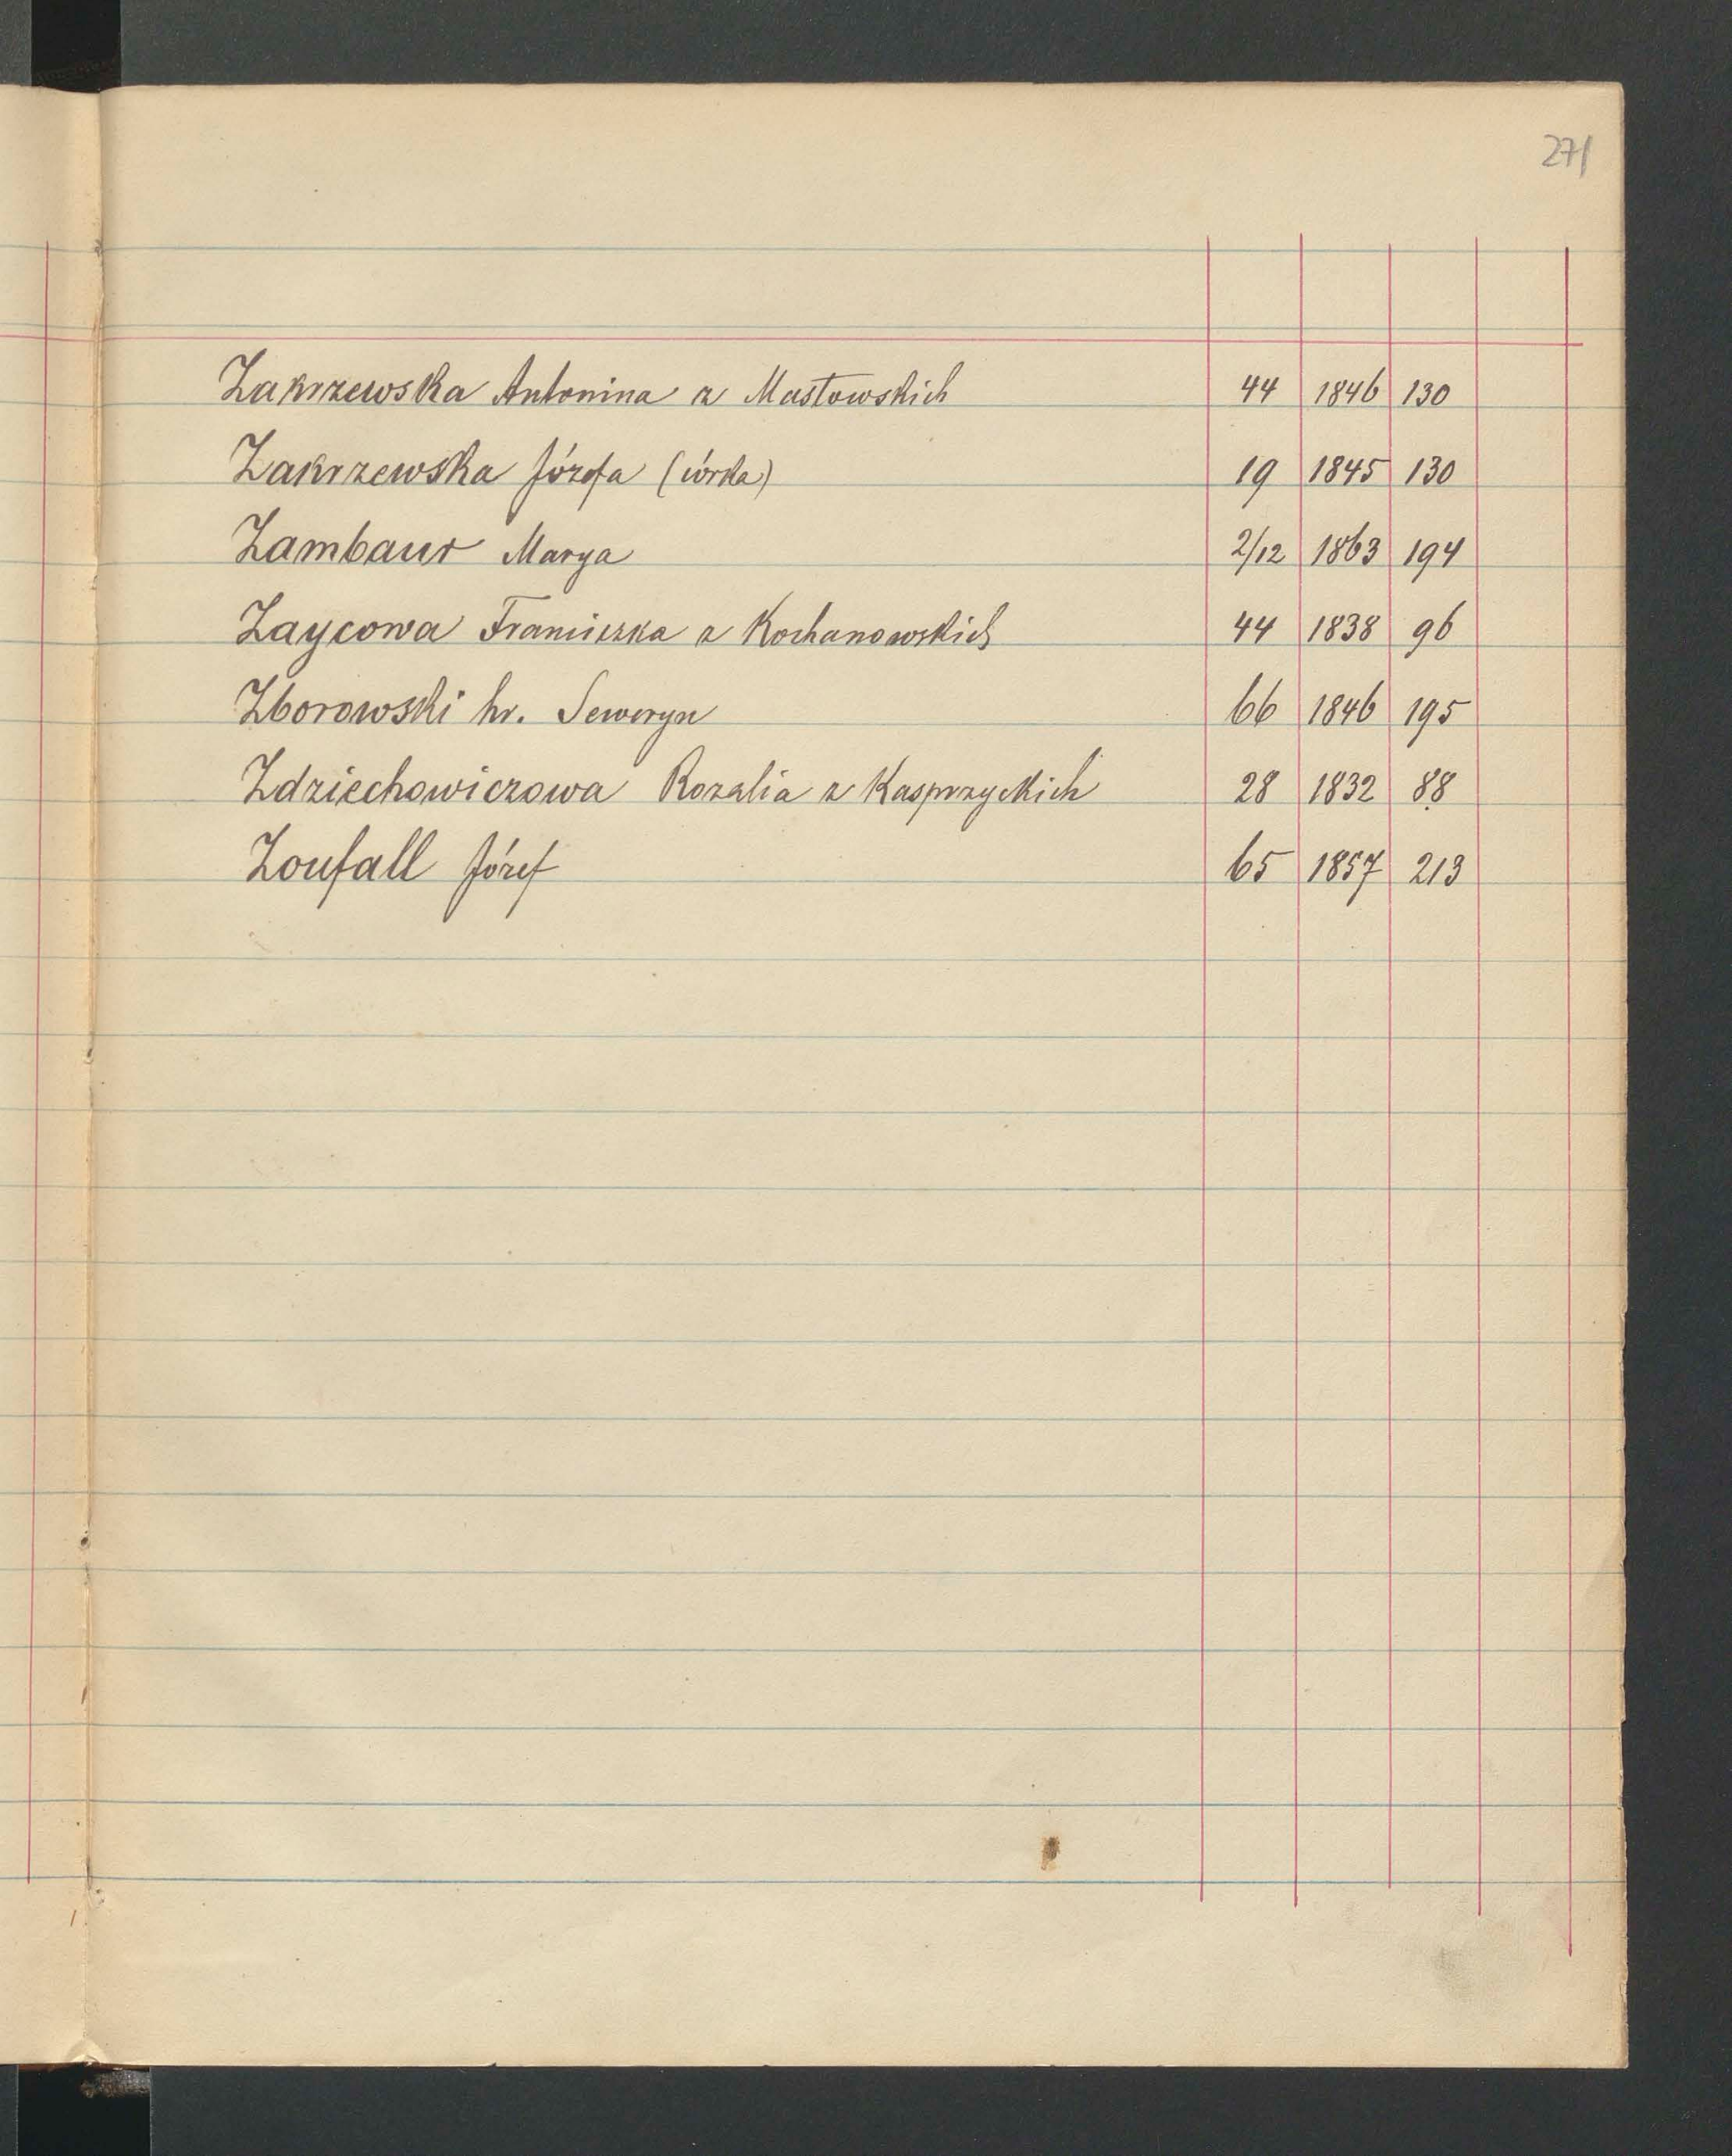 271
Zakrzewska Antonina z Masłowskich 44 1846 130
Zakrzewska Józefa (córka) 19 1845 130
Zambaur Marya 2/12 1863 194
Zaycowa Franciszka z Kochanowskich 44 1838 96
Zborowski hr. Seweryn 66 1846 195
Zdziechowiczowa Rozalia z Kasprzyckich 28 1832 88
Zoufall Józef 65 1857 213